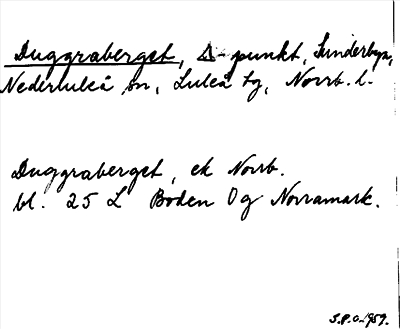 Duggraberget, Δ-punkt, Sunderbyn,
Nederluleå sn, Luleå tg, Norrb. l.
Duggraberget, ek Norrb.
bl. 25 L Boden Og Norramark.
S.P.O. 1959.